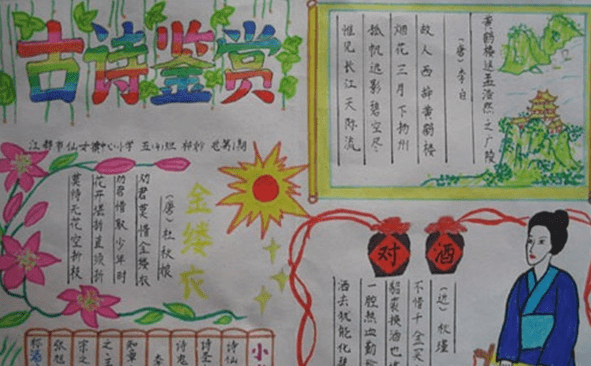 古诗鉴赏
江都市仙女镇中心小学
黄鹤楼送孟浩然之广陵
(唐)李白
故人西辞黄鹤楼
烟花三月下扬州
孤帆远影碧空尽
惟见长江天际流
金缕衣
(唐)杜秋娘
劝君莫惜金缕衣
劝君惜取少年时
花开堪折直须折
莫待无花空折枝
对酒
(近)秋瑾
不惜千金买
貂裘换酒也
一腔热血勤
洒去犹能化碧
小
诗仙
诗圣
诗鬼
知章
宗之
张旭